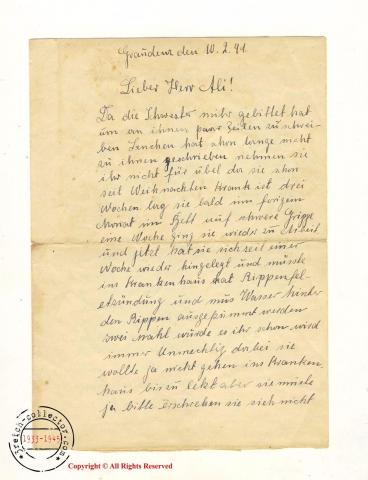 Graudenz den 10.2.41.
Lieber Herr Ali!
Da die Schwester mihr gebittet hat
um an ihnen paar Zeilen zu schrei-
ben Lenchen hat schon lange nicht
zu ihnen geschrieben nehmen sie
ihr nicht für übel da sie schon
seit Weihnachten Krank ist drei
Wochen lag sie bald im forigem
Monat im Bett auf schwere Grippe
eine Woche ging sie wieder zu Arbeit
und jetzt hat sie sich seit einer
Woche wieder hingelegt und müste
ins Krankenhaus hat Rippenfel-
etzündung und müs Wasser hinter
den Rippen ausgepumpt werden
zwei mahl würde es ihr schon wird
immer Unmechtig dabei sie
wollte ja nicht gehen ins Kranken-
haus bis zu letzt aber sie müste
ja bitte erschrecken sie sich nicht
3reich-collector.com
1933-1945
Copyright © All Rights Reserved